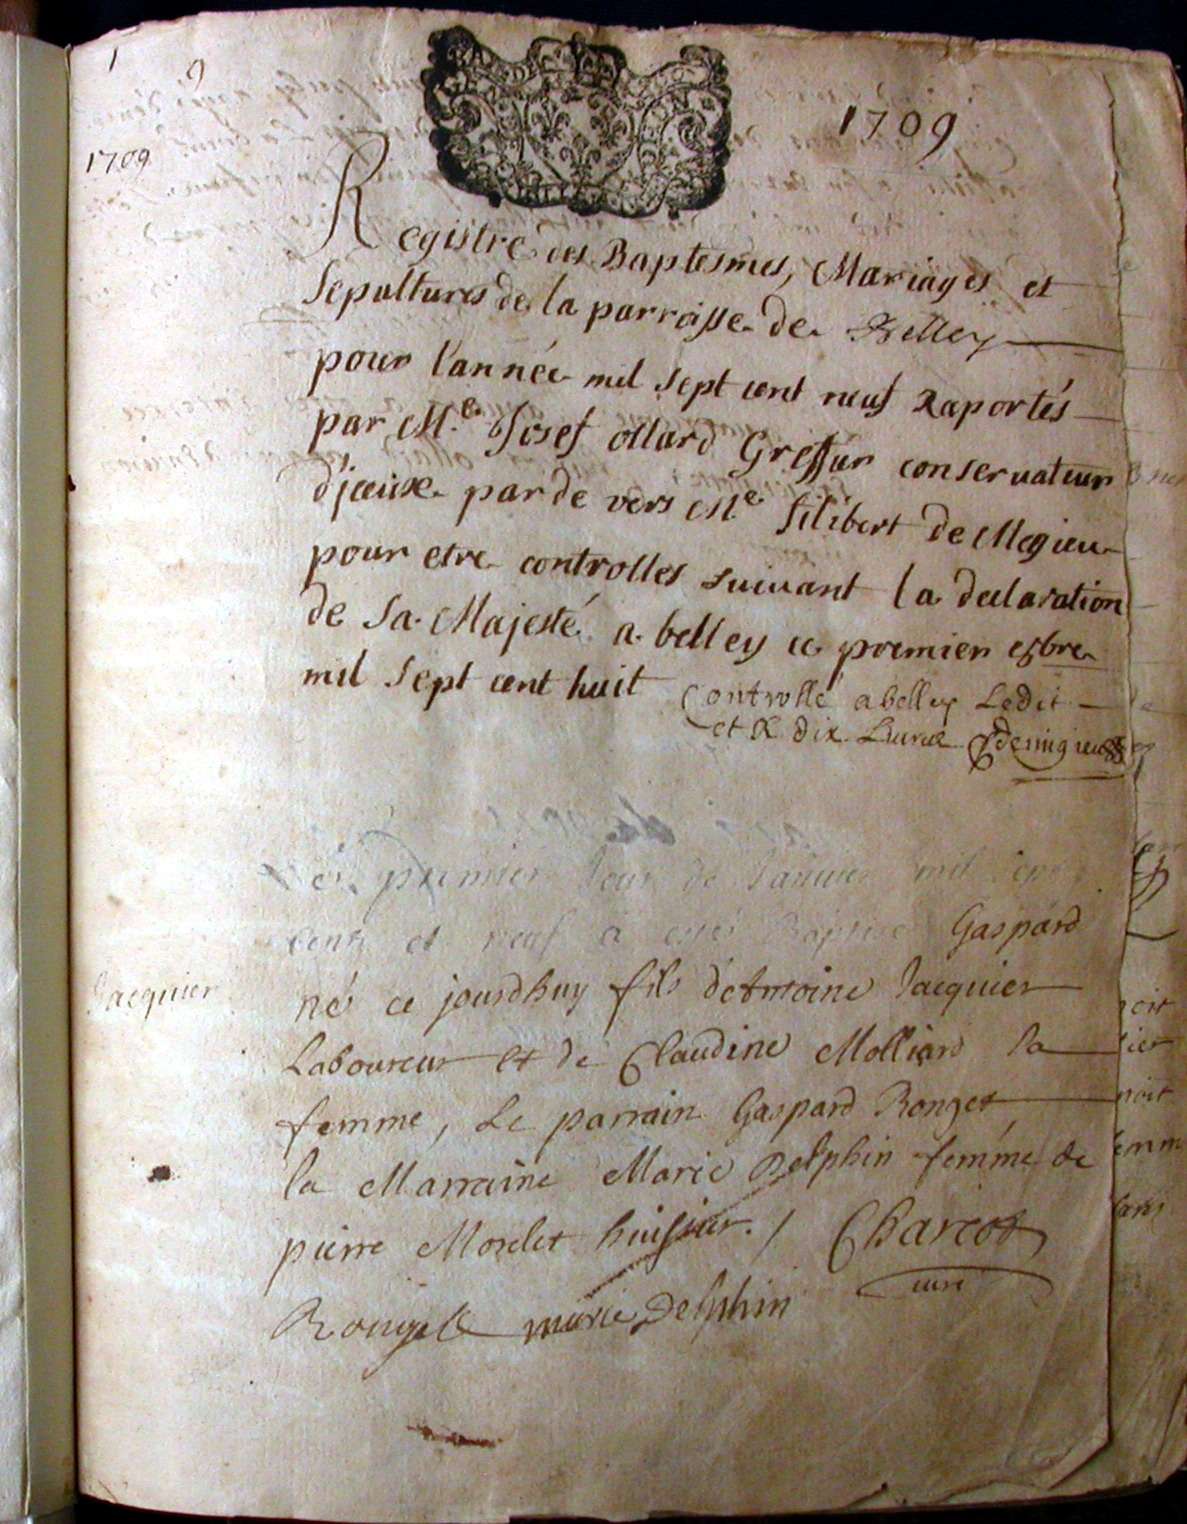 1
9
1709
1709
Registre des Baptesmes, Mariages et
Sepultures de la parroisse de Belley
pour l'année mil sept cent neuf Raportés
par Me. Josef ollard Greffier conservateur
d'jceux par de vers Me. filibert de Megieu
pour etre controlles suivant la declaration
de Sa Majesté a belley ce premier xbre
mil sept cent huit
Controllé a belley Ledit
et R dix Livres Demigieu
Le premier Jour de Janvier mil sept
cents et neuf a esté Baptisé Gaspard
Jacquier
né ce jourdhuy fils d'Antoine Jacquier
Laboureur et de Claudine Molliard sa
femme, Le parrain Gaspard Ronget
la Marraine Marie Delphin femme de
pierre Morelet huissier. / Charcot
curé
Rouget marie Delphin